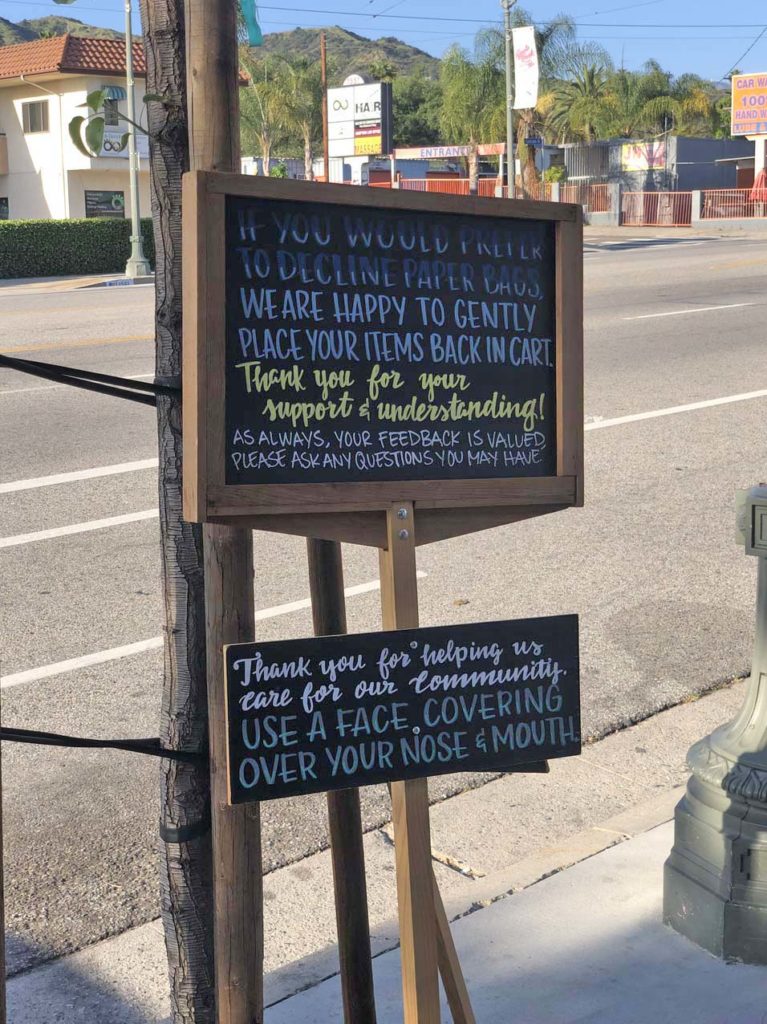 HAIR
MASSAGE
ENTRANCE
CAR WA
100%
HAND WA
IF YOU WOULD PREFER
TO DECLINE PAPER BAGS,
WE ARE HAPPY TO GENTLY
PLACE YOUR ITEMS BACK IN CART.
Thank you for your
support & understanding!
AS ALWAYS, YOUR FEEDBACK IS VALUED
PLEASE ASK ANY QUESTIONS YOU MAY HAVE.
Thank you for helping us
care for our Community.
USE A FACE COVERING
OVER YOUR NOSE & MOUTH.